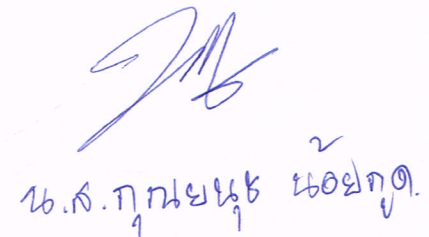 น.ส.กุณยนุช น้อยกูด.